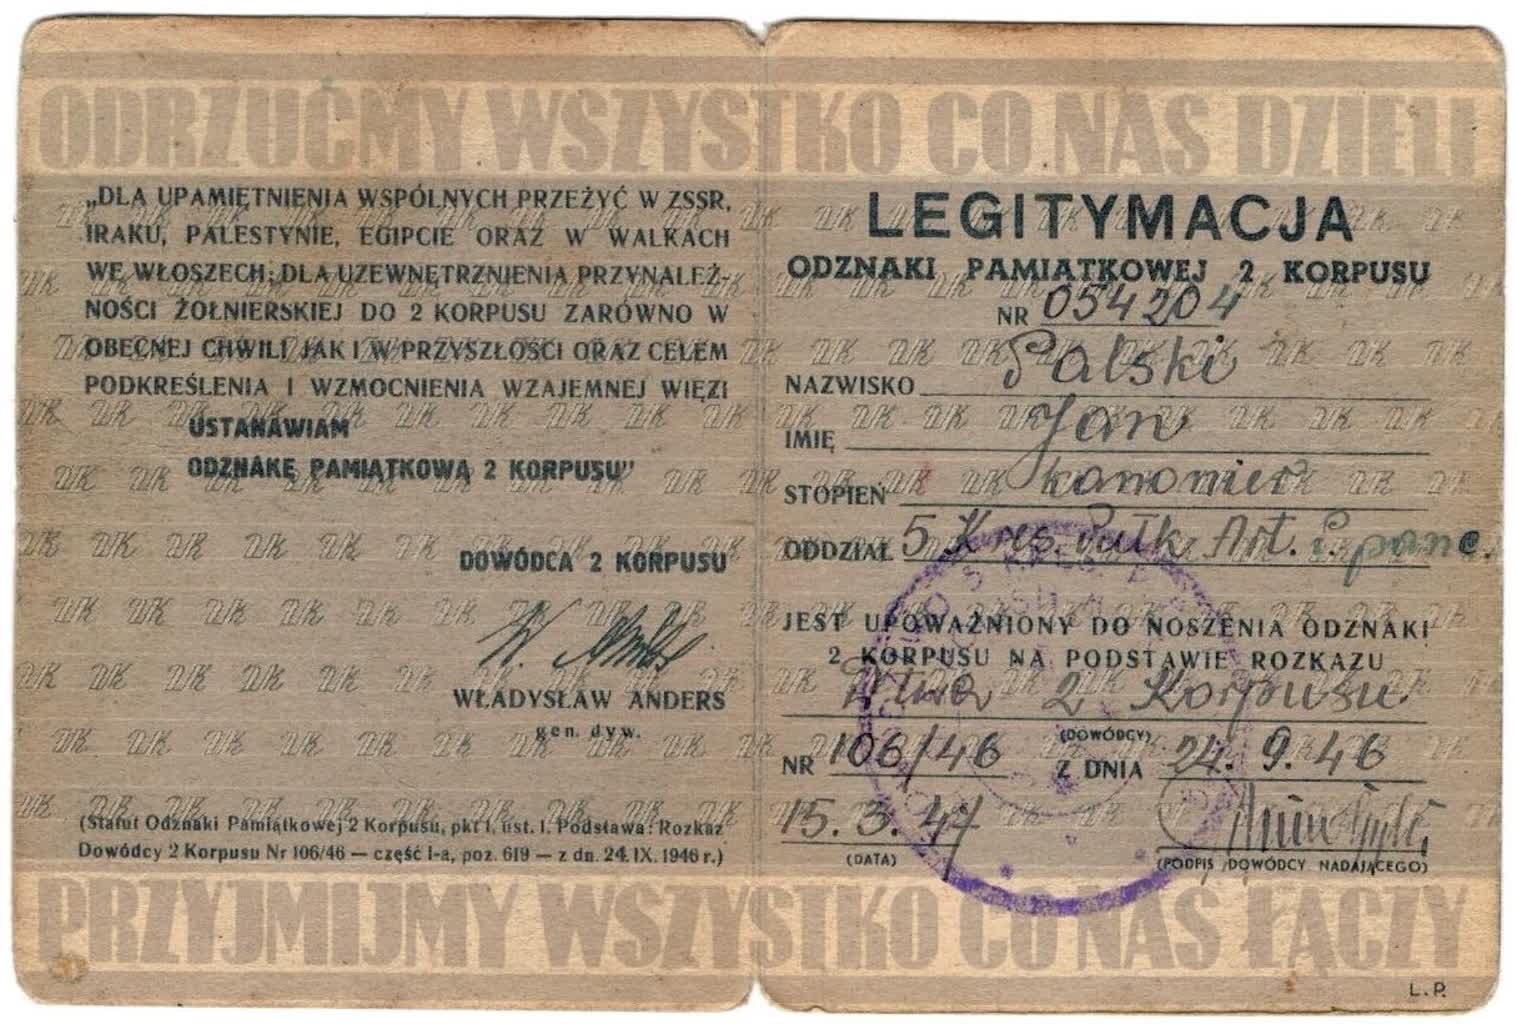 ODRZUĆMY WSZYSTKO CO NAS DZIELI
„DLA UPAMIĘTNIENIA WSPÓLNYCH PRZEŻYĆ W ZSSR,
IRAKU, PALESTYNIE, EGIPCIE ORAZ W WALKACH
WE WŁOSZECH; DLA UZEWNĘTRZNIENIA PRZYNALEŻ-
NOŚCI ŻOŁNIERSKIEJ DO 2 KORPUSU ZARÓWNO W
OBECNEJ CHWILI JAK I W PRZYSZŁOŚCI ORAZ CELEM
PODKREŚLENIA I WZMOCNIENIA WZAJEMNEJ WIĘZI
USTANAWIAM
ODZNAKĘ PAMIĄTKOWĄ 2 KORPUSU"
DOWÓDCA 2 KORPUSU
W. Anders
WŁADYSŁAW ANDERS
gen. dyw.
(Statut Odznaki Pamiątkowej 2 Korpusu, pkt I, ust. I. Podstawa: Rozkaz
Dowódcy 2 Korpusu Nr 106/46 — część I-a, poz. 619 — z dn. 24. IX. 1946 r.)
LEGITYMACJA
ODZNAKI PAMIĄTKOWEJ 2 KORPUSU
NR 054204
NAZWISKO Palski
IMIĘ Jan
STOPIEŃ kanonier
ODDZIAŁ 5 Kres. Pułk Art. P. panc.
JEST UPOWAŻNIONY DO NOSZENIA ODZNAKI
2 KORPUSU NA PODSTAWIE ROZKAZU
Dtwa 2 Korpusu
(DOWÓDCY)
NR 106/46 Z DNIA 24. 9. 46
15. 3. 47
(DATA) (PODPIS DOWÓDCY NADAJĄCEGO)
PRZYJMIJMY WSZYSTKO CO NAS ŁĄCZY
L. P.